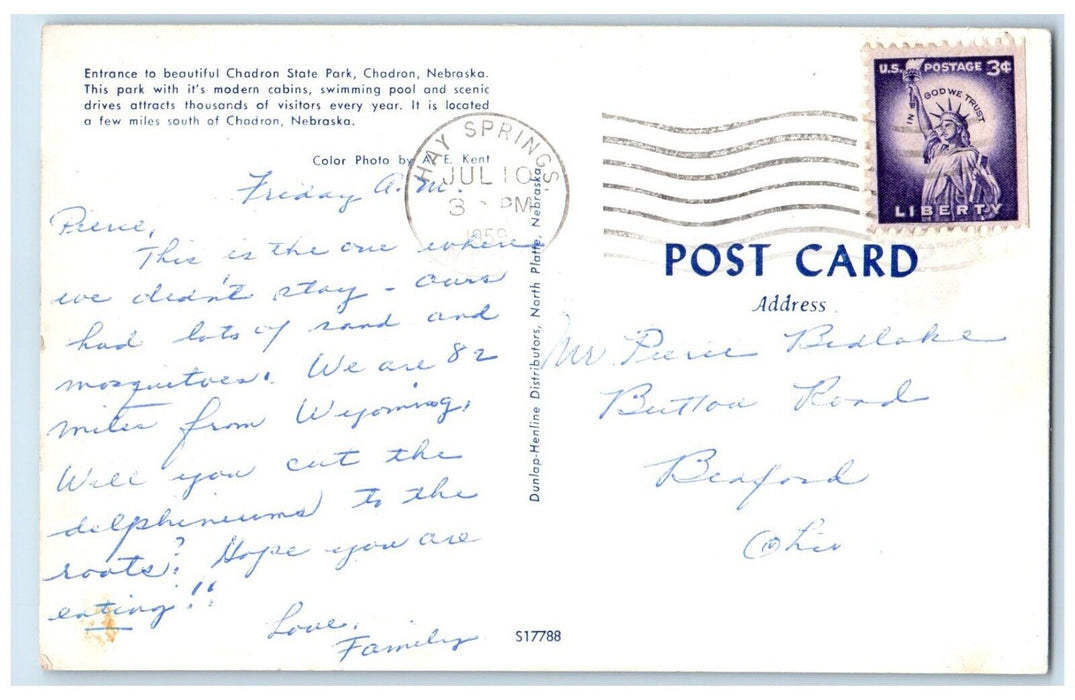 Entrance to beautiful Chadron State Park, Chadron, Nebraska.
This park with it's modern cabins, swimming pool and scenic
drives attracts thousands of visitors every year. It is located
a few miles south of Chadron, Nebraska.
Color Photo by A. E. Kent
Friday A.M.
Pierie,
This is the one where
we didn't stay - ours
had lots of sand and
mosquitoes. We are 82
miles from Wyoming.
Will you cut the
delphineums to the
roots? Hope you are
eating!!
Love,
Family
S17788
Dunlap-Henline Distributors, North Platte, Nebraska
HAY SPRINGS
JUL 10
3 PM
1959
U.S. POSTAGE 3¢
IN GOD WE TRUST
LIBERTY
POST CARD
Address
Mr Pierie Bedlake
Button Road
Bedford
Ohio